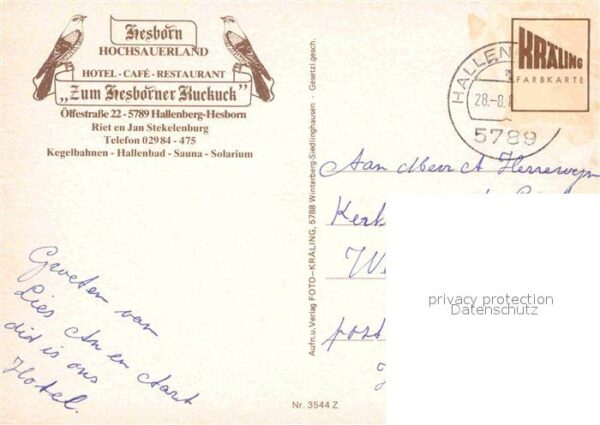 Hesborn
HOCHSAUERLAND
HOTEL - CAFÉ - RESTAURANT
„Zum Hesborner Kuckuck"
Ölfestraße 22 - 5789 Hallenberg-Hesborn
Riet en Jan Stekelenburg
Telefon 02984 - 475
Kegelbahnen - Hallenbad - Sauna - Solarium
Groeten van
Lies An en Aart
dit is ons
Hotel.
Aufn. u. Verlag FOTO-KRÄLING, 5788 Winterberg-Siedlinghausen · Gesetzl. gesch.
Nr. 3544 Z
HALLEN
28.-8.
5789
KRÄLING
FARBKARTE
Aan
Kerk
We
post
privacy protection
Datenschutz